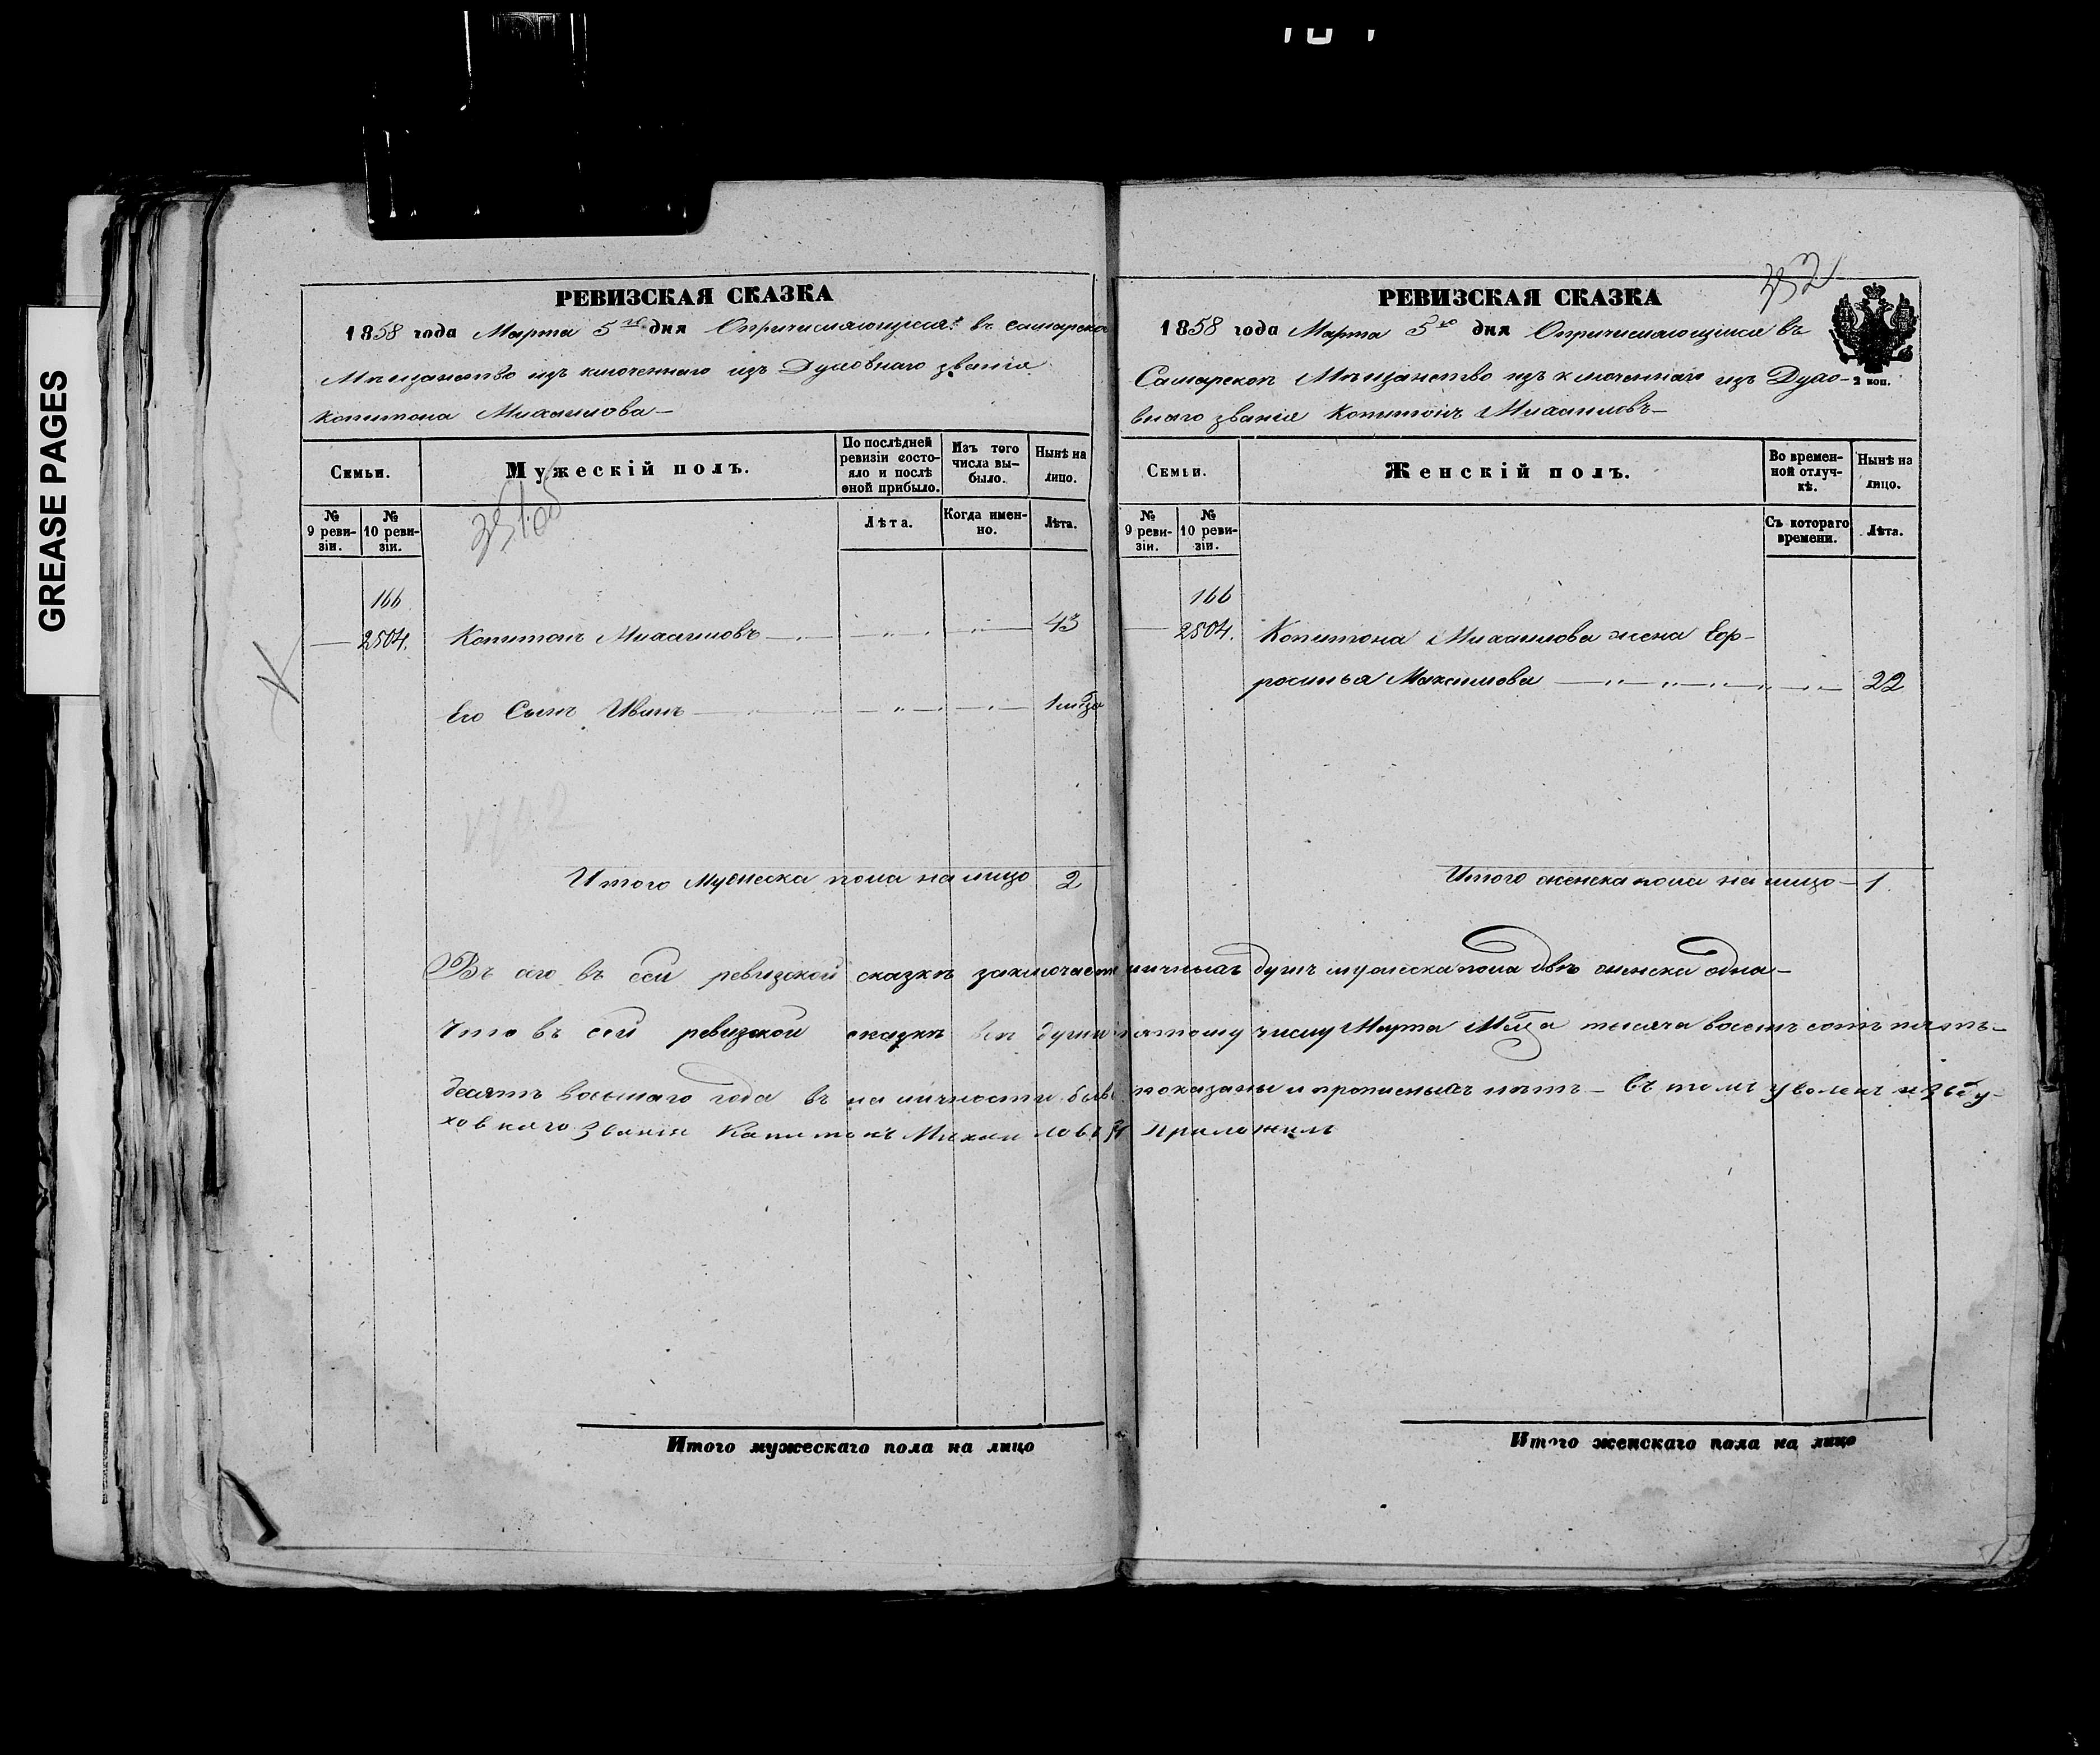 GREASE PAGES
РЕВИЗСКАЯ СКАЗКА
1858 года Марта 5го дня Опричисляющимся въ Самарское
Мѣщанство изъ ключеннаго изъ Духовнаго званія
Копитона Михаилова —
Семьи.
Мужескій полъ.
По послѣдней ревизіи состояло и послѣ оной прибыло.
Изъ того числа выбыло.
Нынѣ на лицо.
№ 9 ревизіи.
№ 10 ревизіи.
Лѣта.
Когда именно.
Лѣта.
166
— 2504. Копитонъ Михаиловъ — 43
Его Сынъ Иванъ — 1
Итого мужеска пола на лицо 2
РЕВИЗСКАЯ СКАЗКА
1858 года Марта 5го дня Опричисляющимся въ
Самарское Мѣщанство изъ ключеннаго изъ Духо-
2 коп.
внаго званія Копитонъ Михаиловъ —
Семьи.
Женскій полъ.
Во временной отлучкѣ.
Нынѣ на лицо.
№ 9 ревизіи.
№ 10 ревизіи.
Съ котораго времени.
Лѣта.
166
— 2504. Копитона Михаилова жена Еф-
росинья Максимова — 22
Итого женска пола на лицо — 1.
въ сей ревизской сказкѣ заключается личныхъ душъ мужеска пола двѣ женска одна —
Что въ сей ревизской сказкѣ всѣ души пятому числу Марта Мѣца тысяча восемь сотъ пять-
десятъ восьмаго года въ на личности показаны и прописныхъ нѣтъ — въ томъ уволенъ изъ ду-
ховнаго званія Капитонъ Михаиловъ приложилъ
Итого мужескаго пола на лицо
Итого женскаго пола на лицо